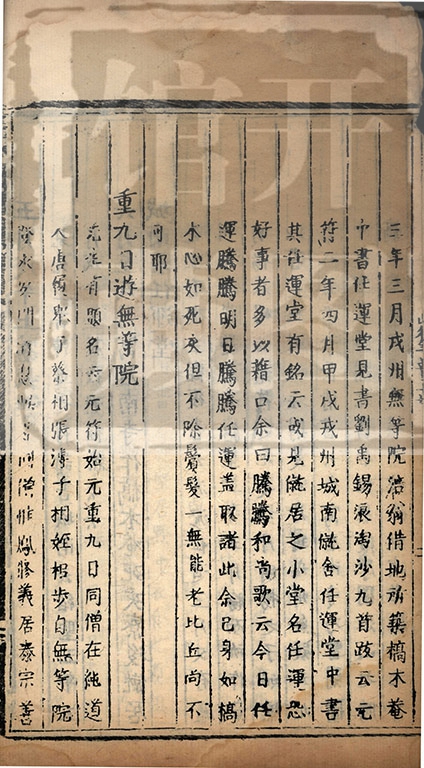 三年三月戎州無等院涪翁借地所築槁木菴
中書任運堂見書劉禹錫浪淘沙九首跋云元
符二年四月甲戌戎州城南僦舍任運堂中書
其任運堂有銘云或見僦居之小堂名任運恐
好事者多以藉口余曰騰騰和尚歌云今日任
運騰騰明日騰騰任運蓋取諸此余已身如槁
木心如死灰但不除鬚髮一無能老比丘尚不
可耶
重九日遊無等院
先生有題名云元符始元重九日同僧在純道
人唐履舉子蔡相張溥子相姪桹步自無等院
僧惟鳳修義居泰宗善